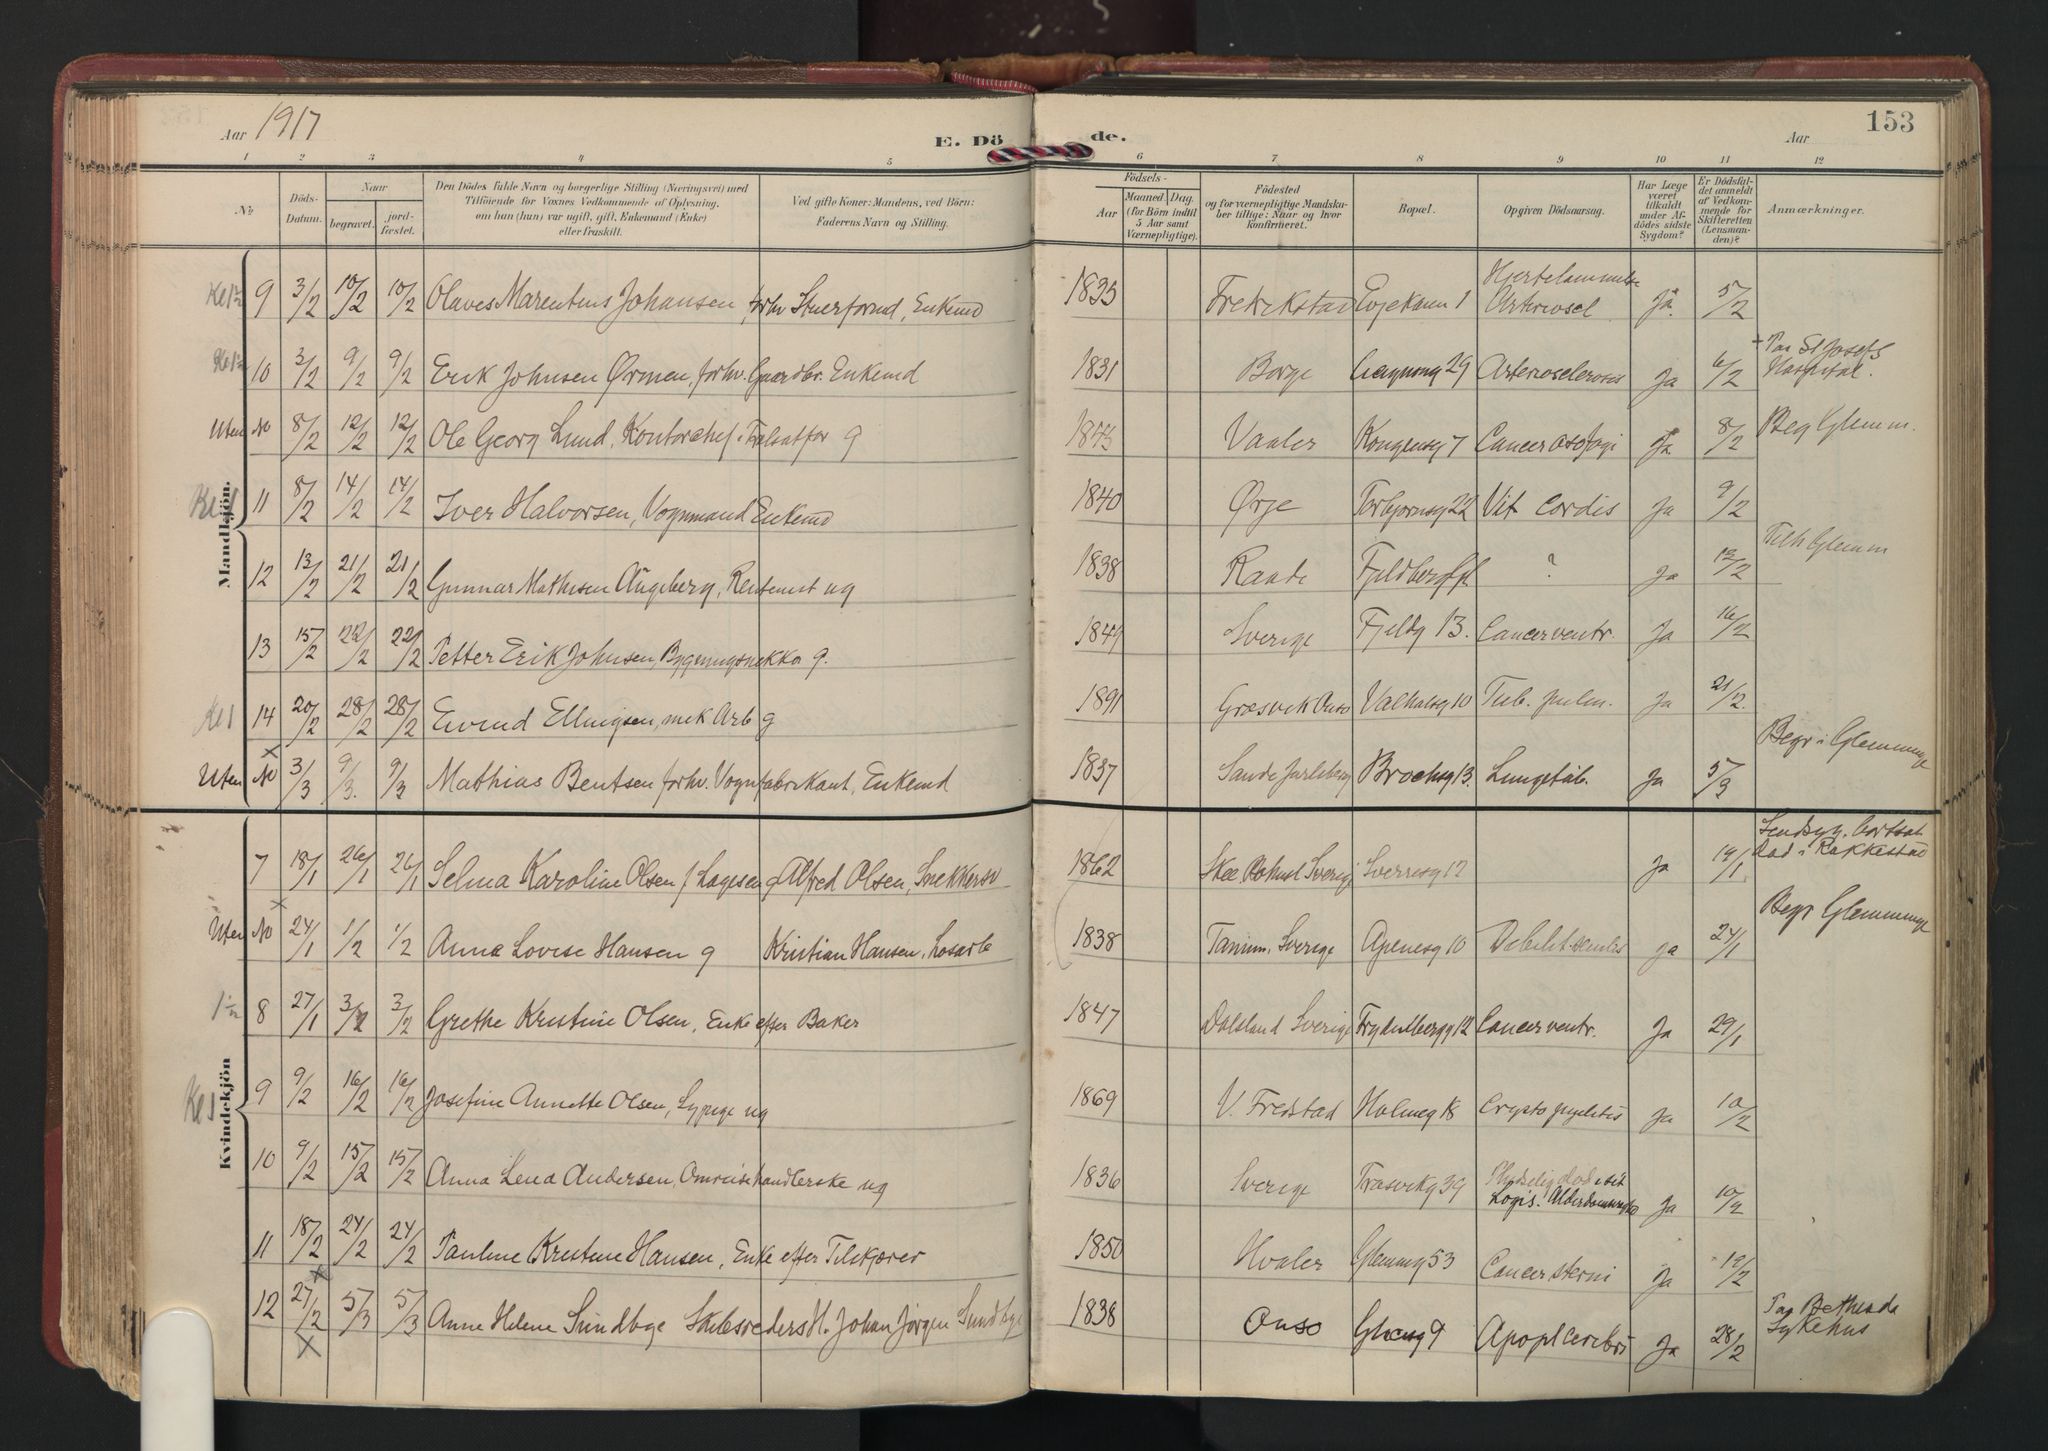 Aar 1917
E. Dö de.
Aar
153
1 2 3 4 5 6 7 8 9 10 11 12
№
Döds-Datum.
Naar
begravet.
jordfæstet.
Den Dödes fulde Navn og borgerlige Stilling (Næringsvei) med
Tilföiende for Voxnes Vedkommende af Oplysning,
om han (hun) var ugift, gift, Enkemand (Enke)
eller fraskilt.
Ved gifte Koner: Mandens, ved Börn:
Faderens Navn og Stilling.
Födsels-
Aar
Maaned. Dag.
(for Börn indtil
5 Aar samt
Værnepligtige).
Födested
og for værnepligtige Mandskaber tillige: Naar og hvor
konfirmeret.
Bopæl.
Opgiven Dödsaarsag.
Har Læge
været
tilkaldt
under Afdödes sidste
Sygdom?
Er Dödsfaldet anmeldt
af Vedkommende for
Skifteretten
(Lensmanden)?
Anmærkninger.
Mandkjön.
9 3/2 10/2 10/2 Olaves Marentius Johansen, forhv Stuerformd, Enkemd 1835 Fredrikstad 1 Hjertelammelse Arterioscl Ja 5/2
10 3/2 9/2 9/2 Erik Johnsen Ørmen, forhv. Gaardbr. Enkemd 1831 Borge 29 Arteriosclerosis Ja 6/2 Paa St Josefs Hospital.
Uten № 8/2 12/2 12/2 Ole Georg Lund, Kontorchef i g 1843 Vaaler Kongensg 7 Cancer Ja 8/2 Beg Glemm.
11 8/2 14/2 14/2 Iver Halvorsen, Vognmand Enkemd 1840 Ørje Torbjornsg 22 Vit Cordis Ja 9/2
12 13/2 21/2 21/2 Gunnar Mathisen Augeberg, ug 1838 Raade Fjeldberg ? Ja 13/2 Tilh Glemm
13 15/2 22/2 22/2 Petter Erik Johnsen, g. 1849 Sverige Fjeldg 13. Cancer ventr. Ja 16/2
14 20/2 28/2 28/2 Eivind Ellingsen, mek Arb g 1891 Græsvik Onsø Valhalsg 10 Tub. pulm. Ja 21/2.
Uten № 3/3 9/3. 9/3 Mathias Bentsen forhv. Vognfabrikant, Enkemd 1837 Sande Jarlsberg Brochsg 13. Lungetub. Ja 5/3 Begr i Glemminge
Kvindekjön
7 18/1 26/1 26/1 Selma Karoline Olsen f Lagesen g Alfred Olsen, Snekkersv 1862 Skee Sverige Sverresg 12 Ja 19/1 Død i Rakkestad
Uten № 24/1 1/2 1/2 Anna Lovise Hansen g Kristian Hansen, Løsarb 1838 Tanum, Sverige Apenesg 10 ja 24/1 Begr Glemminge
8 27/1 3/2 3/2 Grethe Kristine Olsen, Enke efter Baker 1847 Dalsland Sverige 12 Cancer ventr. Ja 29/1
9 9/2 16/2 16/2 Josefine Annette Olsen, Sypige ug 1869 V. Fredstad Holmeg 18 Ja 10/2
10 9/2 15/2 15/2 Anna Lena Andersen, Omreisehandlerske ug 1836 Sverige Trosvikg 39 Plydselig død i sit Logis. Ja 10/2
11 18/2 24/2 24/2 Pauline Kristine Hansen, Enke efter Tilskjærer 1850 Hvaler Glemmg 53 Cancer Ja 19/2
12 27/2 5/3 5/3 Anne Helene Sundbye H. Johan Jørgen Sundbye 1838 Onsø 9 Apopl cerebri Ja 28/2 Paa Bethesda Sykehus